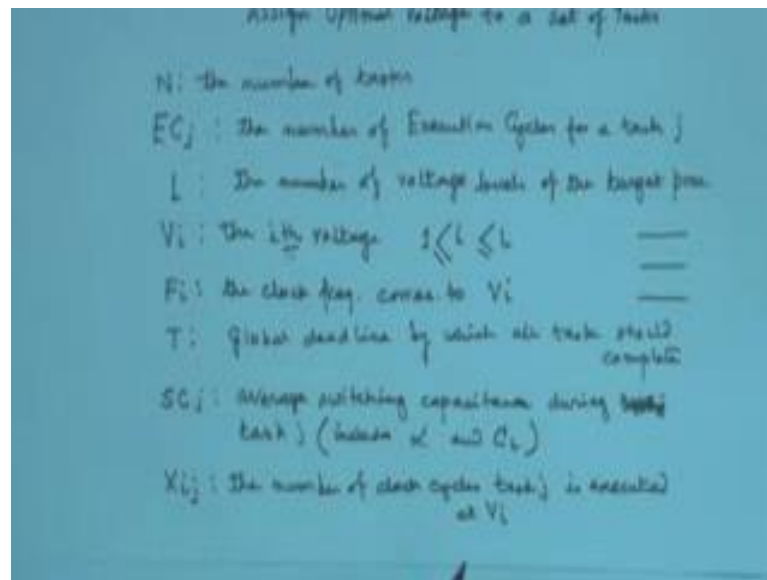 Assign Optimal voltage to a set of Tasks
N: the number of tasks
ECj : The number of Execution Cycles for a task j
L : The number of voltage levels of the target proc
Vi : The ith voltage 1 ≤ i ≤ L
Fi : the clock freq. corres. to Vi
T : Global deadline by which all task should
complete
SCj : average switching capacitance during
task j (includes α and CL)
Xij : The number of clock cycles task j is executed
at Vi